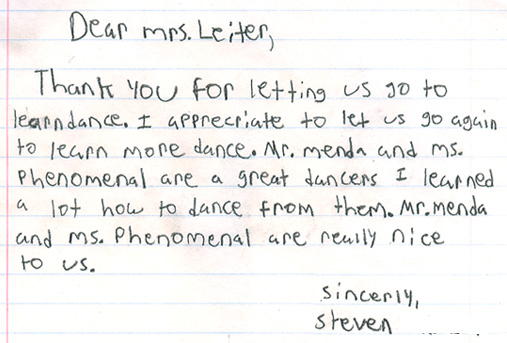 Dear mrs. Leiter,
Thank you for letting us go to
learndance. I apprecriate to let us go again
to learn more dance. Mr. menda and ms.
Phenomenal are a great dancers I learned
a lot how to dance from them. Mr. menda
and ms. Phenomenal are really nice
to us.
sincerly,
Steven